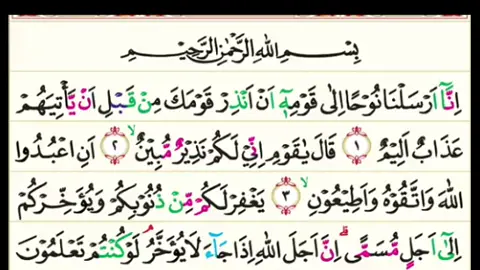 بِسْمِ اللهِ الرَّحْمٰنِ الرَّحِيْمِ
اِنَّاۤ اَرْسَلْنَا نُوْحًا اِلٰى قَوْمِهٖۤ اَنْ اَنْذِرْ قَوْمَكَ مِنْ قَبْلِ اَنْ يَّاْتِيَهُمْ
عَذَابٌ اَلِيْمٌ ۝۱ قَالَ يٰقَوْمِ اِنِّيْ لَكُمْ نَذِيْرٌ مُّبِيْنٌ ۙ۝۲ اَنِ اعْبُدُوا
اللهَ وَاتَّقُوْهُ وَاَطِيْعُوْنِ ۙ۝۳ يَغْفِرْ لَكُمْ مِّنْ ذُنُوْبِكُمْ وَيُؤَخِّرْكُمْ
اِلٰۤى اَجَلٍ مُّسَمًّى ؕ اِنَّ اَجَلَ اللهِ اِذَا جَآءَ لَا يُؤَخَّرُ ۘ لَوْ كُنْتُمْ تَعْلَمُوْنَ